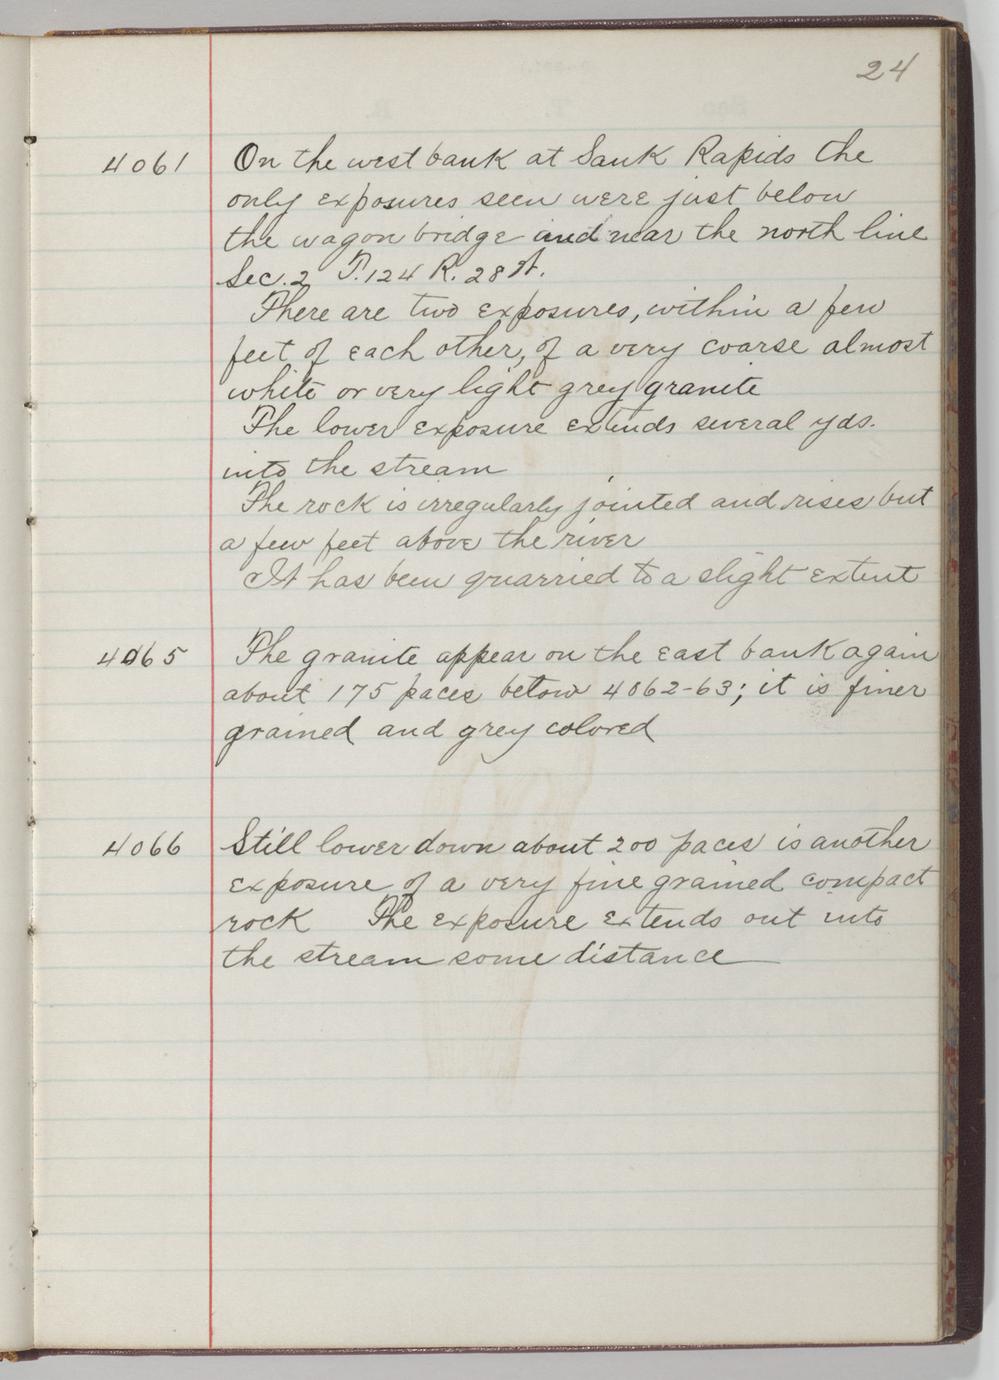 24
4061 On the west bank at Sauk Rapids the
only exposures seen were just below
the wagon bridge and near the north line
Sec. 2 T. 124 R. 28
There are two exposures, within a few
feet of each other, of a very coarse almost
white or very light grey granite
The lower exposure extends several yds.
into the stream
The rock is irregularly jointed and rises but
a few feet above the river
It has been quarried to a slight extent
4065 The granite appear on the east bank again
about 175 paces below 4062-63; it is finer
grained and grey colored
4066 Still lower down about 200 paces is another
exposure of a very fine grained compact
rock The exposure extends out into
the stream some distance